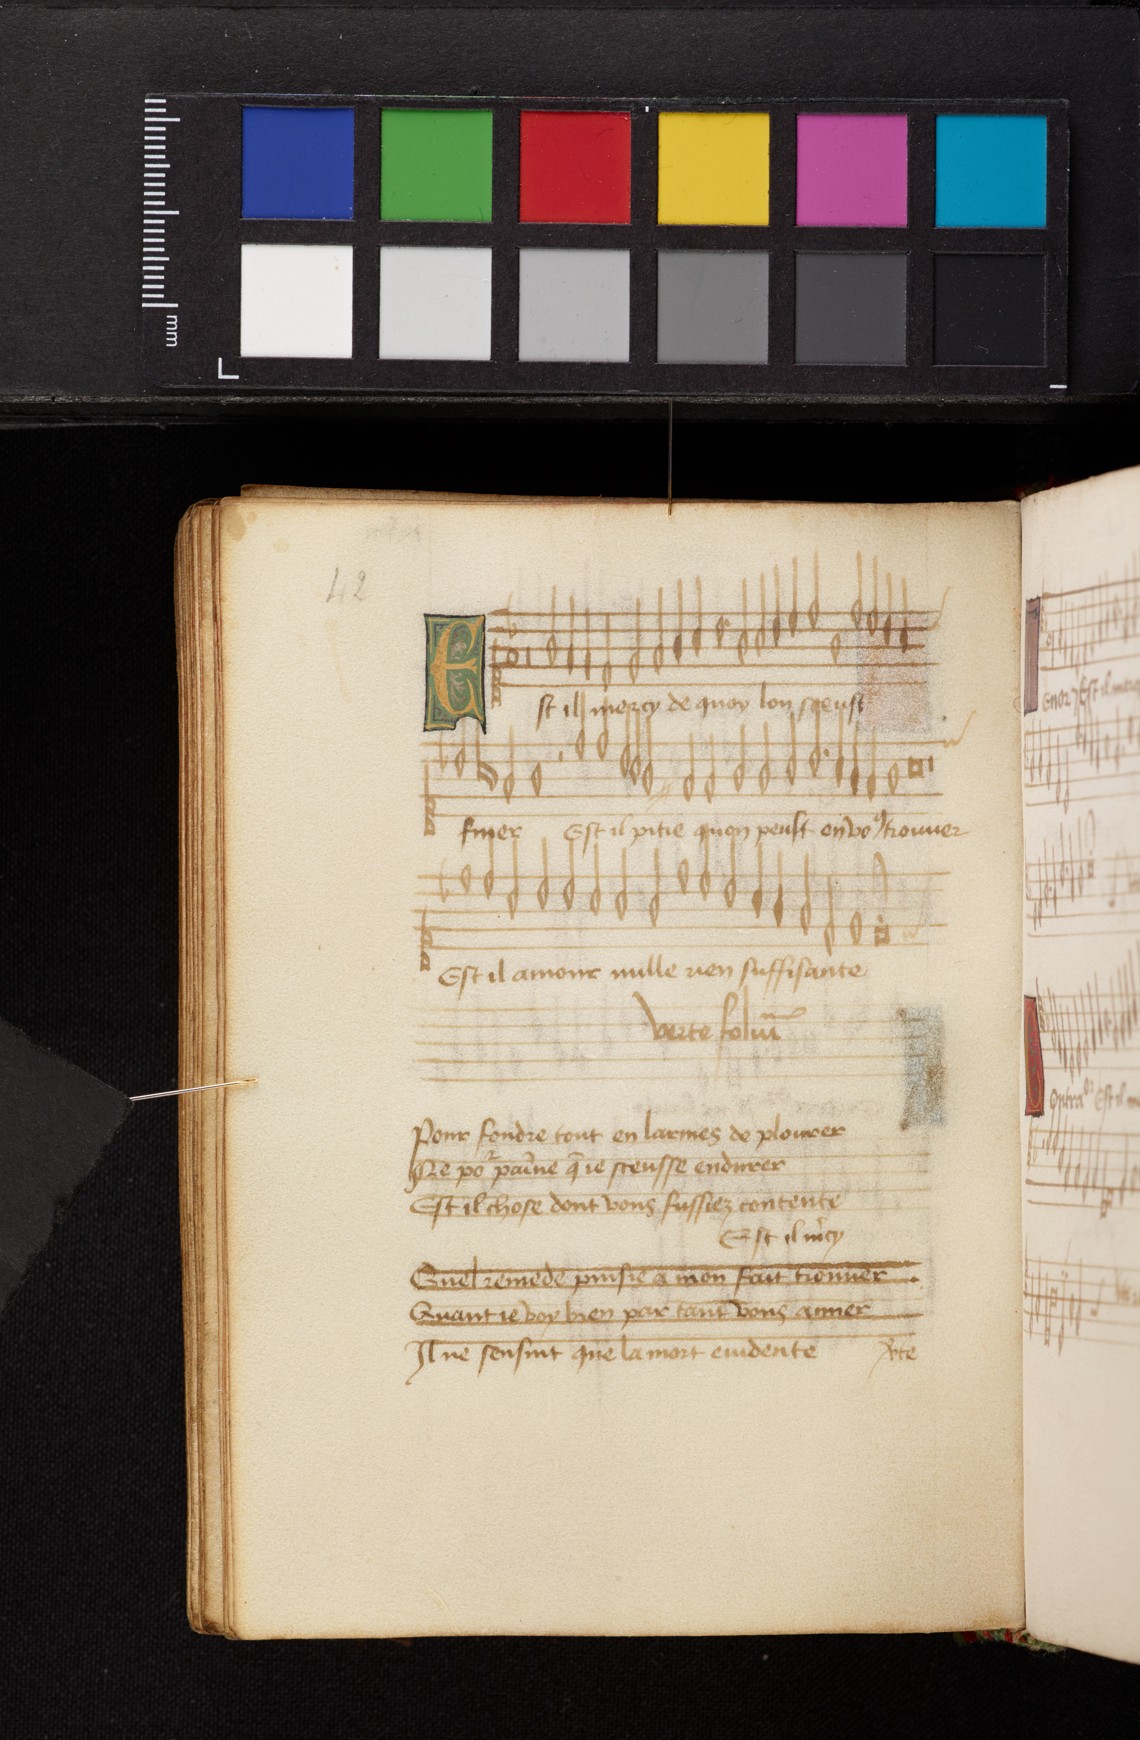 mm
42
Est il mercy de quoy lon sceust
finer Est il pitie quon peust en voꝰ trouuer
Est il amour nulle rien suffisante
verte foliū
Pour fondre tout en larmes de plourer
Ne poʳ paine q̄ ie sceusse endurer
Est il chose dont vous fussiez contente
Est il m̄cy
Quel remede puisie a mon fait trouuer
Quant ie voy bien par tant vous amer
Il ne sensuit que la mort euidente
Tenor Est il
Contra Est il